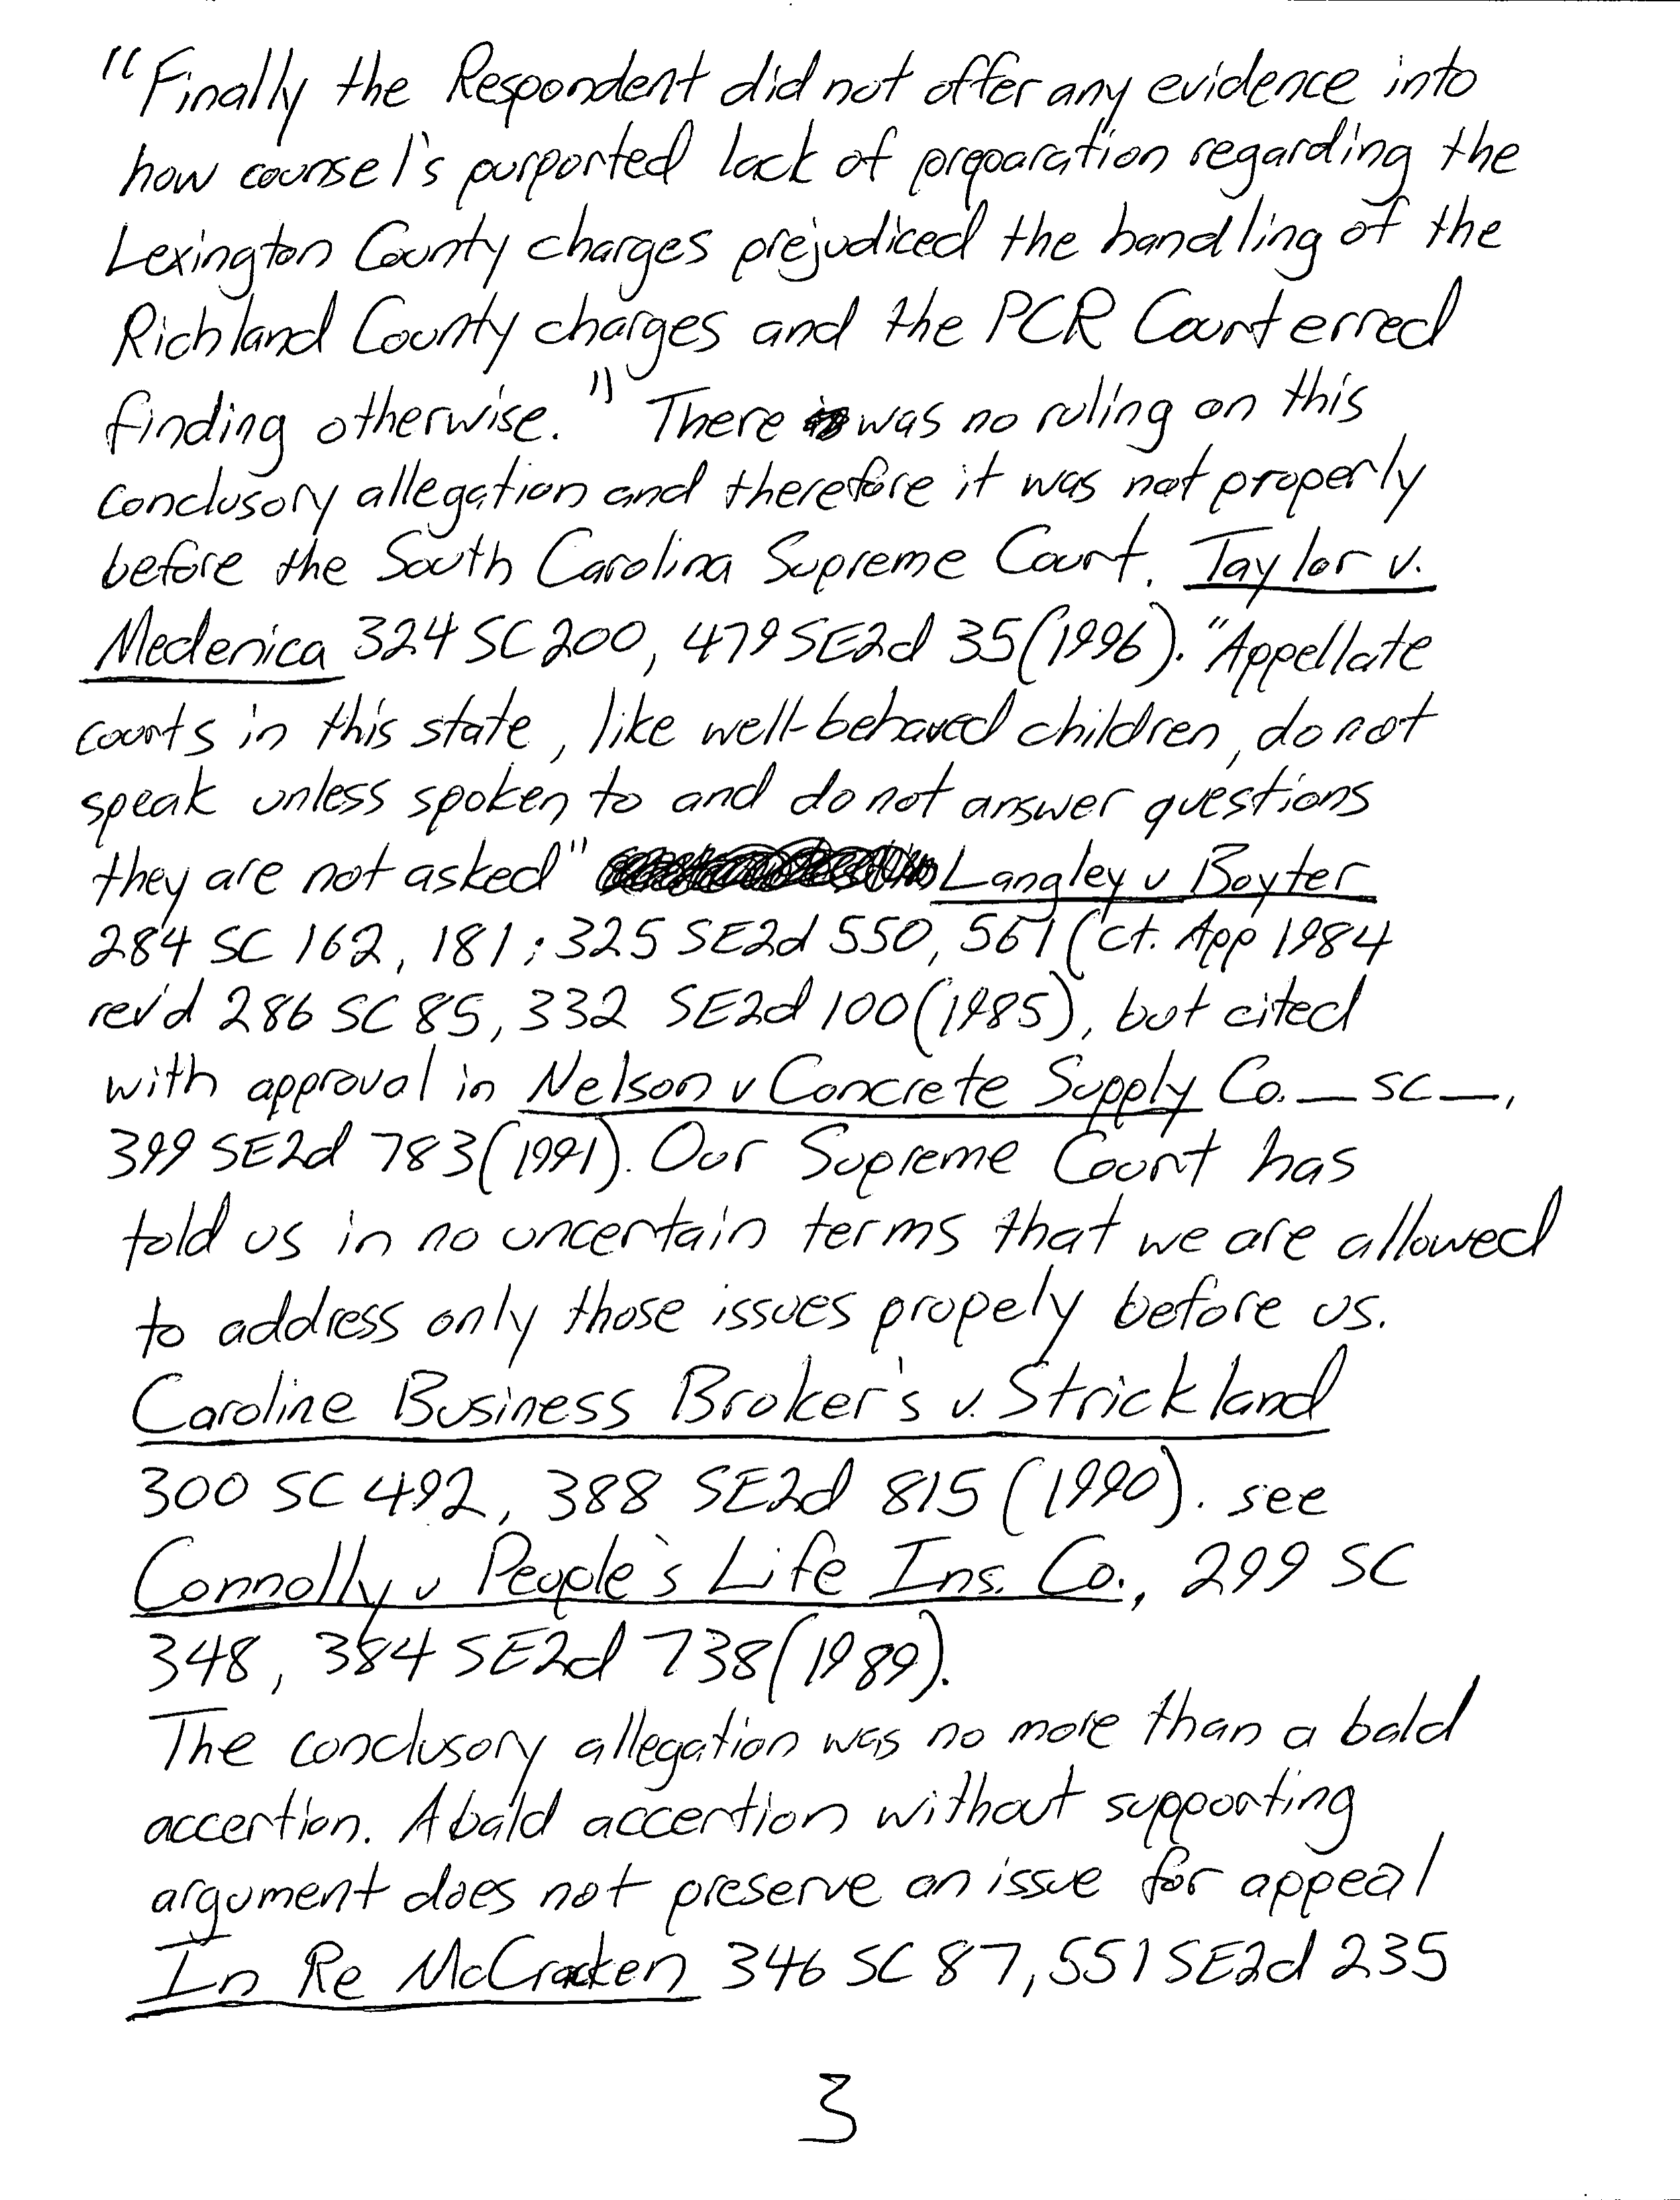 "Finally the Respondent did not offer any evidence into
how counsel's purported lack of preparation regarding the
Lexington County charges prejudiced the handling of the
Richland County charges and the PCR Court erred
finding otherwise." There was no ruling on this
conclusory allegation and therefore it was not properly
before the South Carolina Supreme Court. Taylor v.
Medenica 324 SC 200, 479 SE2d 35 (1996). "Appellate
courts in this state, like well-behaved children, do not
speak unless spoken to and do not answer questions
they are not asked" Langley v Boyter
284 SC 162, 181; 325 SE2d 550, 561 (Ct. App 1984
rev'd 286 SC 85, 332 SE2d 100 (1985), but cited
with approval in Nelson v Concrete Supply Co. _ SC _,
399 SE2d 783 (1991). Our Supreme Court has
told us in no uncertain terms that we are allowed
to address only those issues propely before us.
Caroline Business Broker's v. Strickland
300 SC 492, 388 SE2d 815 (1990). see
Connolly v People's Life Ins. Co., 299 SC
348, 384 SE2d 738 (1989).
The conclusory allegation was no more than a bald
accertion. A bald accertion without supporting
argument does not preserve an issue for appeal
In Re McCracken 346 SC 87, 551 SE2d 235
3